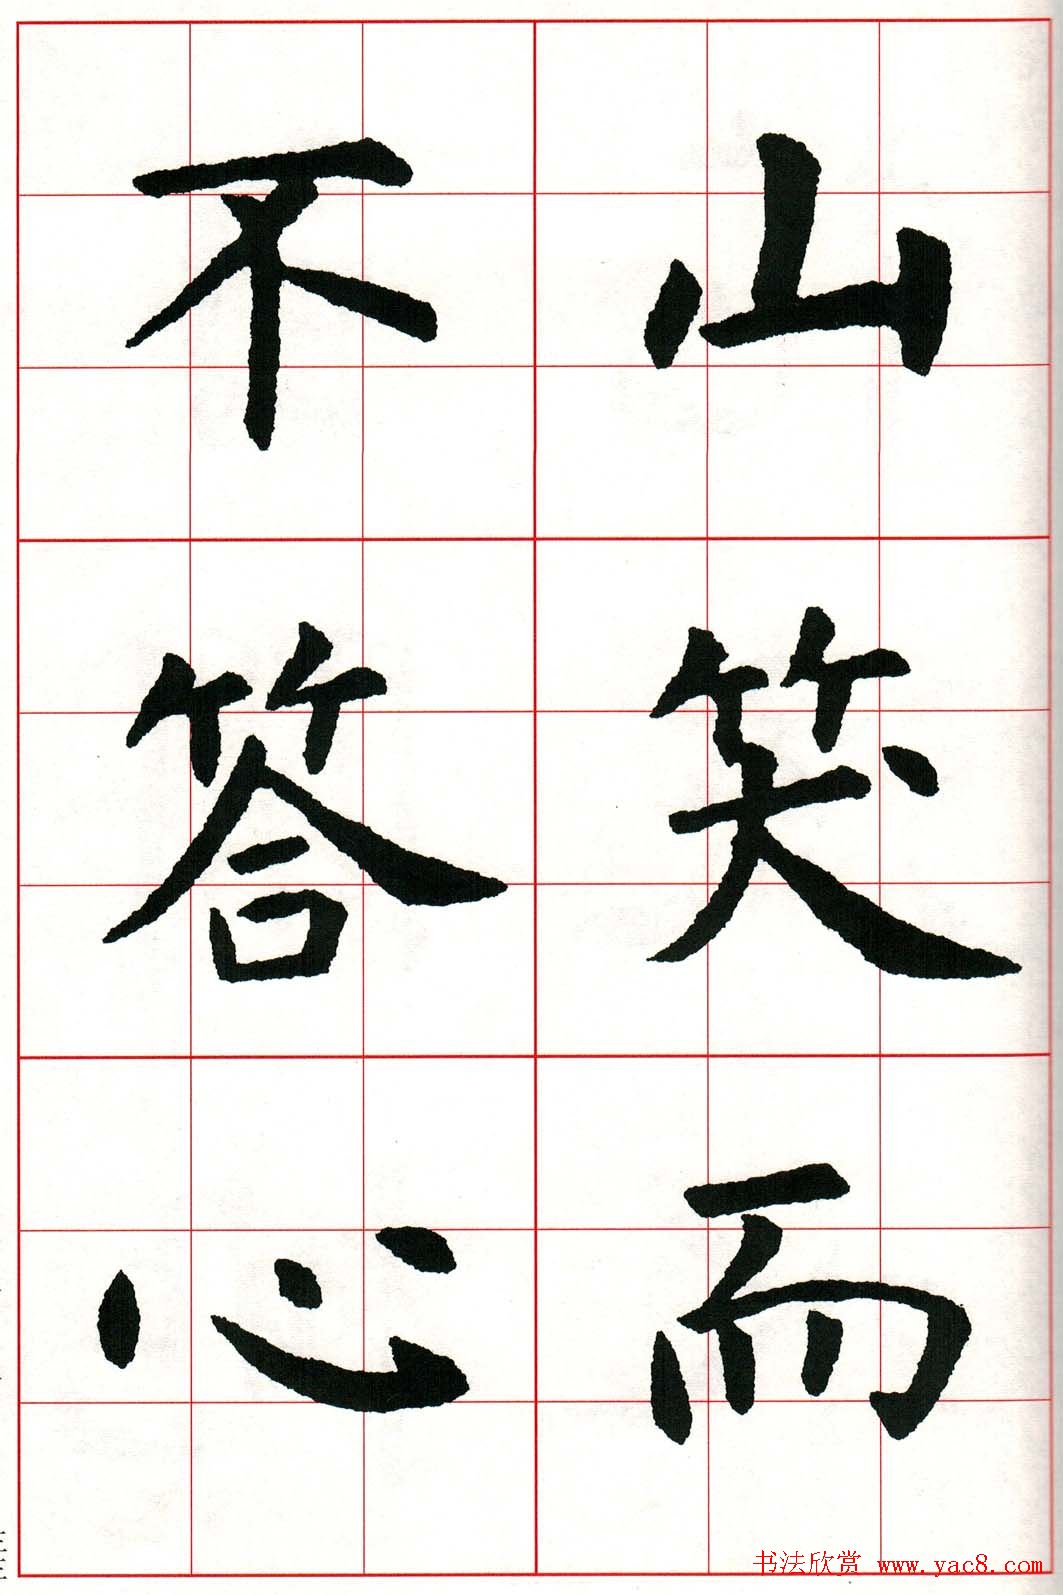 山笑而
不答心
书法欣赏 www.yac8.com